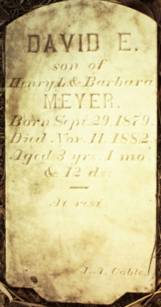 DAVID E.
son of
Henry L. & Barbara
MEYER.
Born Sept. 29. 1879.
Died Nov. 11. 1882.
Aged 3 yrs. 1 mo.
& 12 ds.
At rest